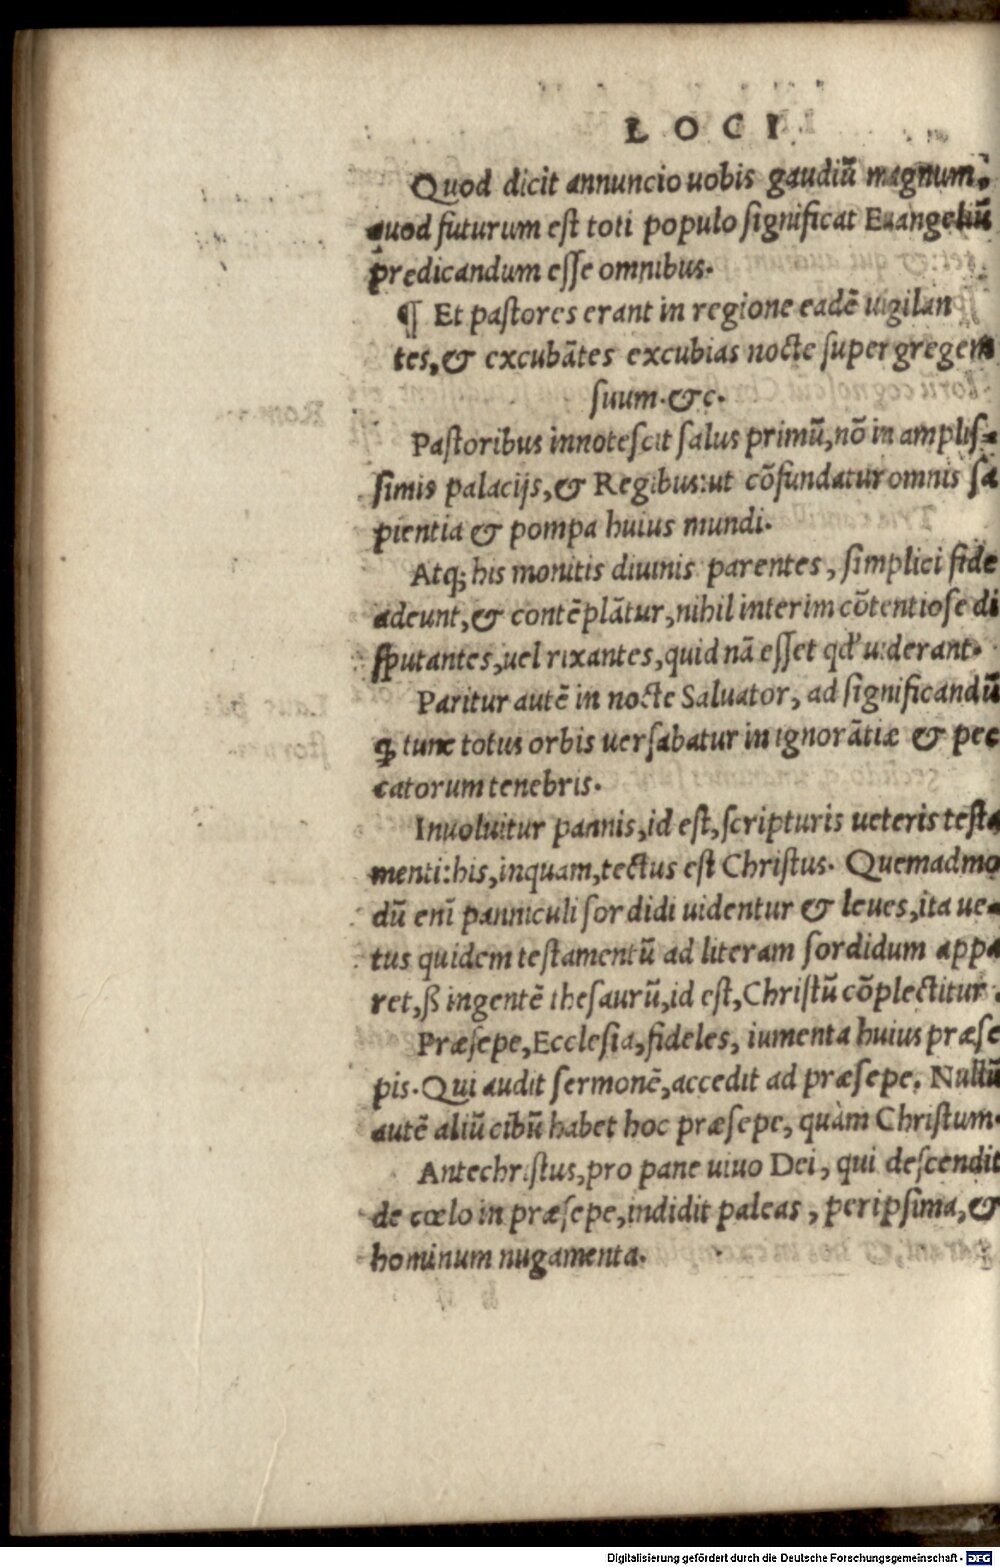 LOCI
Quod dicit annuncio uobis gaudiū magnum,
quod futurum est toti populo significat Euangeliū
predicandum esse omnibus.
¶ Et pastores erant in regione eadē uigilan
tes, & excubātes excubias nocte super gregem
suum. &c.
Pastoribus innotescit salus primū, nō in amplis-
simis palacijs, & Regibus: ut cōfundatur omnis sa
pientia & pompa huius mundi.
Atq; his monitis diuinis parentes, simplici fide
adeunt, & contēplātur, nihil interim cōtentiose di
sputantes, uel rixantes, quid nā esset qđ uiderant.
Paritur autē in nocte Saluator, ad significandū
ꝙ tunc totus orbis uersabatur in ignorātiæ & pec
catorum tenebris.
Inuoluitur pannis, id est, scripturis ueteris testa
menti: his, inquam, tectus est Christus. Quemadmo
dū enī panniculi sordidi uidentur & leues, ita ue-
tus quidem testamentū ad literam sordidum appa
ret, ß ingentē thesaurū, id est, Christū cōplectitur.
Præsepe, Ecclesia, fideles, iumenta huius præse
pis. Qui audit sermonē, accedit ad præsepe. Nullū
autē aliū cibū habet hoc præsepe, quàm Christum.
Antechristus, pro pane uiuo Dei, qui descendit
de cœlo in præsepe, indidit paleas, peripsima, &
hominum nugamenta.
Digitalisierung gefördert durch die Deutsche Forschungsgemeinschaft - DFG